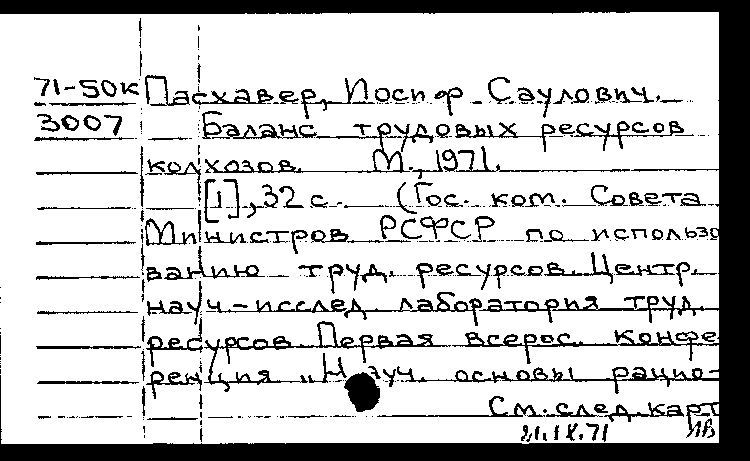 71-50к Пасхавер, Иосиф Саулович.
3007 Баланс трудовых ресурсов
колхозов. М., 1971.
[1], 32 с. (Гос. ком. Совета
Министров РСФСР по использо
ванию труд. ресурсов. Центр.
науч.-исслед лаборатория труд.
ресурсов. Первая всерос. конфе
ренция „Науч. основы рацио-
См. след. карт
21.IX.71 ЛВ